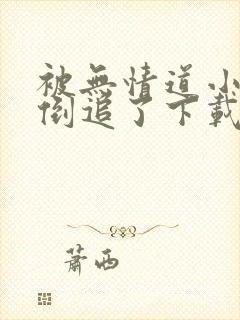 被無情道小
倒追了下載
蕭西